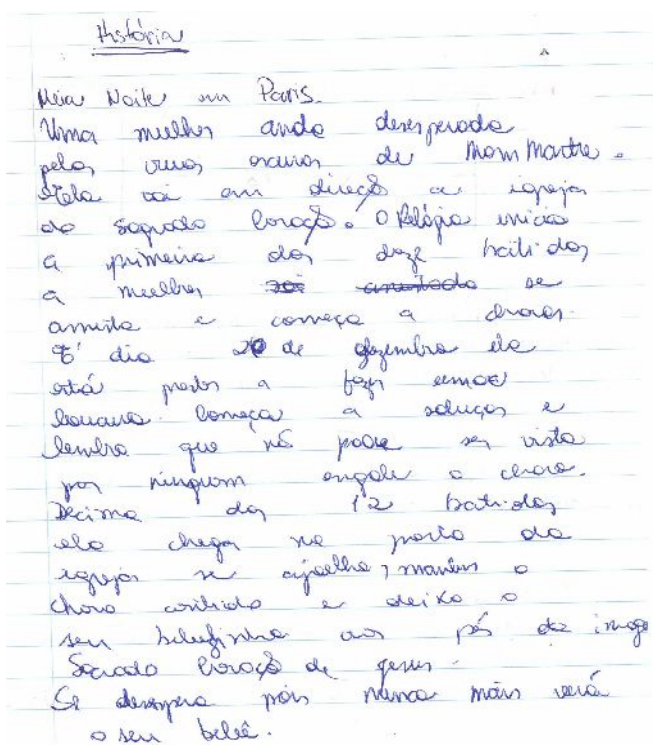 História
Meia Noite em Paris.
Uma mulher anda desesperada
pelas ruas escuras de Mom Martre.
Ela vai em direção a igreja
do Sagrado Coração. O Relógio inicia
a primeira das doze batidas
a mulher se
assusta e começa a chorar.
É dia 20 de dezembro ela
está prestes a fazer uma
loucura. Começa a soluçar e
lembra que não pode ser vista
por ninguem engole o choro.
Decima das 12 batidas
ela chega na porta da
igreja se ajoelha, mantém o
choro contido e deixa o
seu bebezinho aos pés da imagem
Sagrado Coração de Jesus.
Se desespera pois nunca mais verá
o seu bebê.